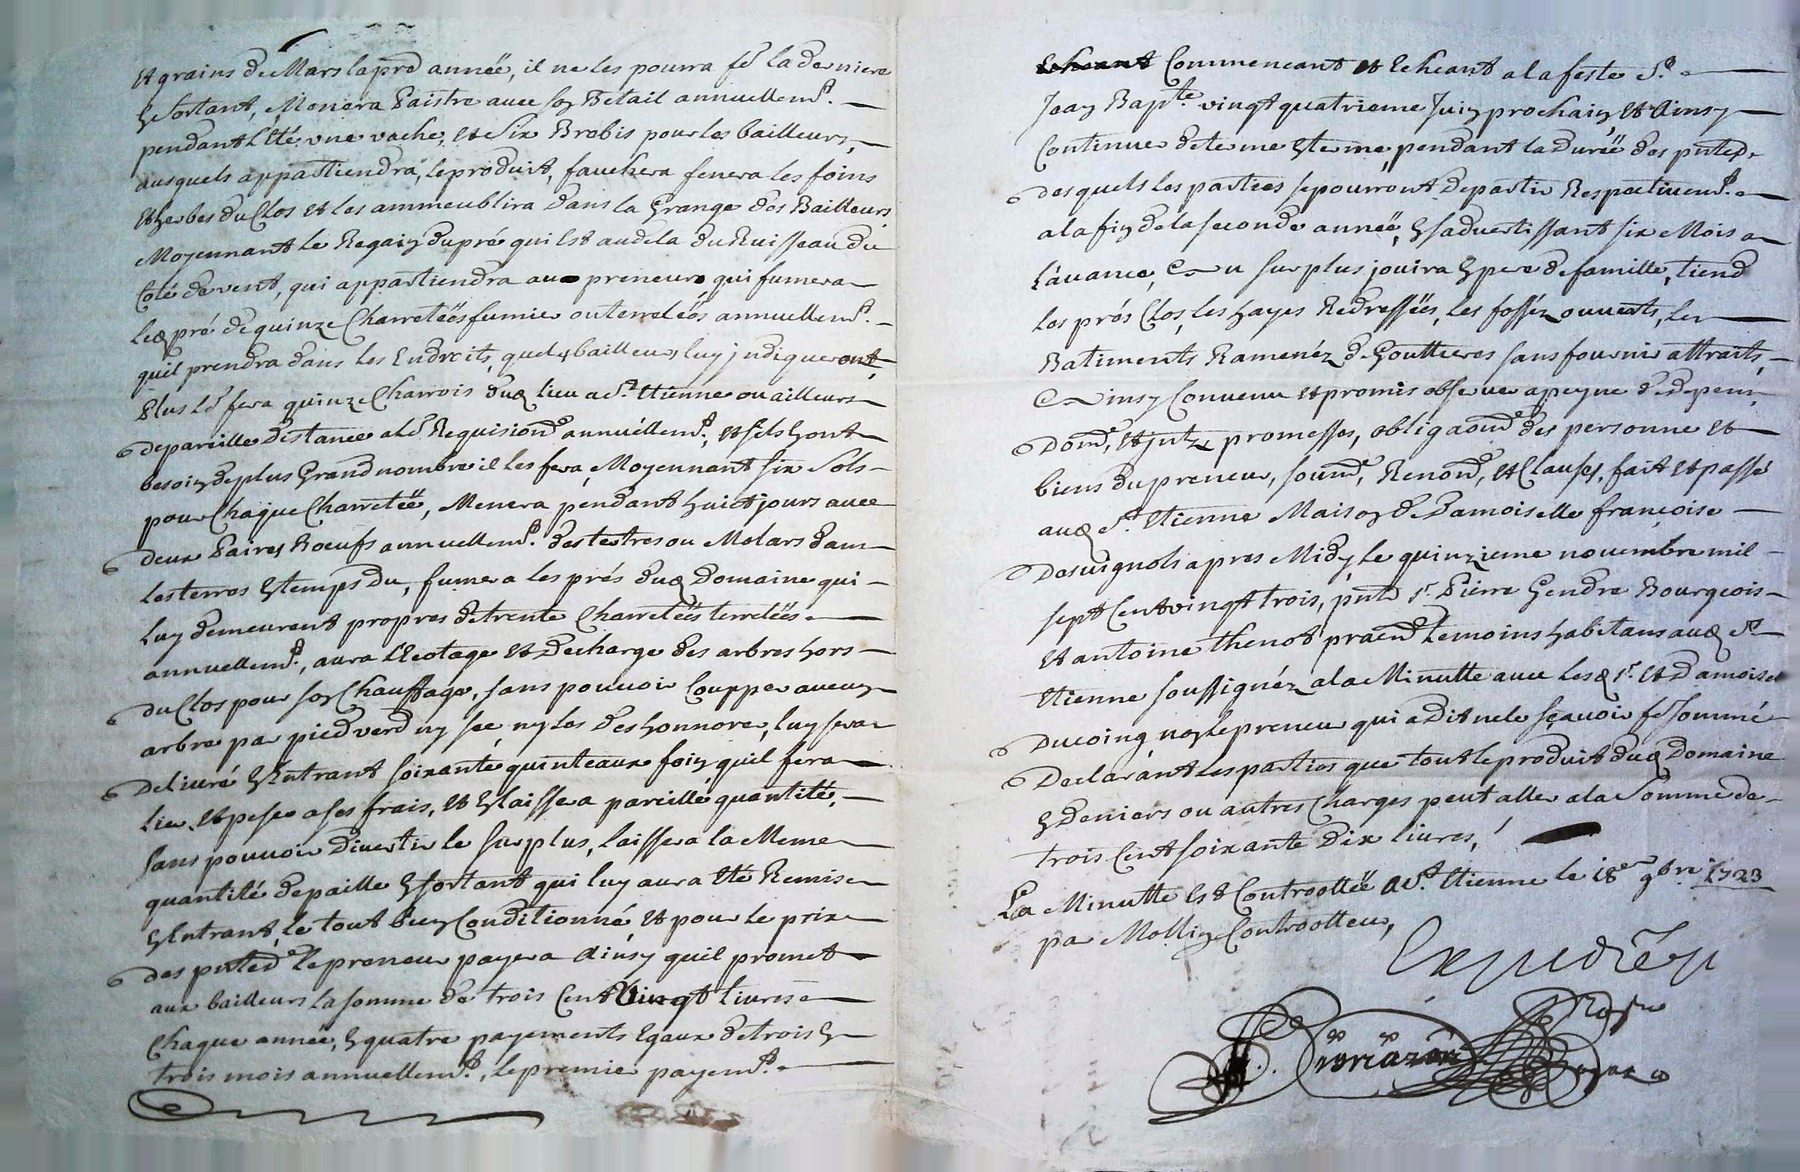 et grains de Mars la pred annéë, il ne les pourra fe la derniere
En sortant, Menera Paistre avec son Betail annuellemt.
pendant L'Eté vne vache, et six Brebis pour les bailleurs,
ausquels appartiendra, le produit, fauchera fenera les foins
et herbes du Clos et les ammeublira dans la Grange des Bailleurs
Moyennant le Regain du pré qui est audela du Ruisseau du
Coté de vent, qui appartiendra au preneur qui fumera
led pré de quinze Charretéës fumier ou terreléës annuellemt.
quil prendra dans les Endroits, que les bailleurs luy jndiqueront,
Plus led fera quinze Charrois dud lieu a St. Etienne ou ailleurs
de pareille distance a le Requisiond annuéllemt, et s'ils en ont
besoin de plus Grand nombre il les fera Moyennant six Sols
pour Chaque Charretéë, Menera pendant huict jours avec
deux Paires Boeufs annuellemt. des tertres ou Molars dans
les terres En temps du, fumera les prés dud Domaine qui
luy demeurent propres de trente Charretéës terreléës
annuellemt, aura l'Ecotage et Decharge des arbres hors
du Clos pour son Chauffage, sans pouvoir Coupper aucun
arbre par pied verd ny sec ny les Deshonnorer, luy sera
Delivré En Entrant soixante quinteaux foin quil fera
Lier et peser a ses frais, et En laissera pareille quantité,
sans pouvoir Divertir le surplus, laissera la Meme
quantité de paille En sortant qui luy aura eté Remise
En Entrant, le tout bien Conditionné et pour le prix
des pnted le preneur payera Ainsy quil promet
aux bailleurs la somme de trois Cent Vingt livres
Chaque année, En quatre payements Egaux de trois En
trois mois annuellemt, le premier payemt.
Echeant Commencant et Echeant a la feste St.
Jean Bapte. vingt quatrieme Juin prochain et Ainsy
Continuer de terme En terme pendant la Duréë des pnted
desquels les parties se pourront departir Respectivemt.
a la fin de la seconde annéë, En s'advertissant six Mois a
L'avance, Au surplus jouira En pere de famille, tiend
les prés Clos, les hayes Redresséës, les fossés ouverts, les
Batiments Ramenéz de Gouttieres sans fournir attraits,
Ainsy Convenu et promis observer a peyne de Depens,
Domd, et jntz promesses, obligaond des personne et
biens du preneur, soumd, Renond, et Clauses, fait et passé
aud St. Etienne Maison de Damoiselle françoise
Desvignols apres Midy le quinzieme novembre mil
sept Cent vingt trois, pnts sr. Pierre Gendre Bourgeois
et antoine thenot pracnd temoins habitans aud St.
Etienne soussignéz a la Minutte avec lesd sr. et Damoiselle
Ducoing non le preneur qui a Dit ne le sçavoir fe sommé
Declarant les parties que tout le produit dud Domaine
En Deniers ou autres Charges peut aller a la somme de
trois Cent soixante dix livres,
La Minutte est Controolléë a St. Etienne le 18e 9bre 1723
par Mollin Controolleur,